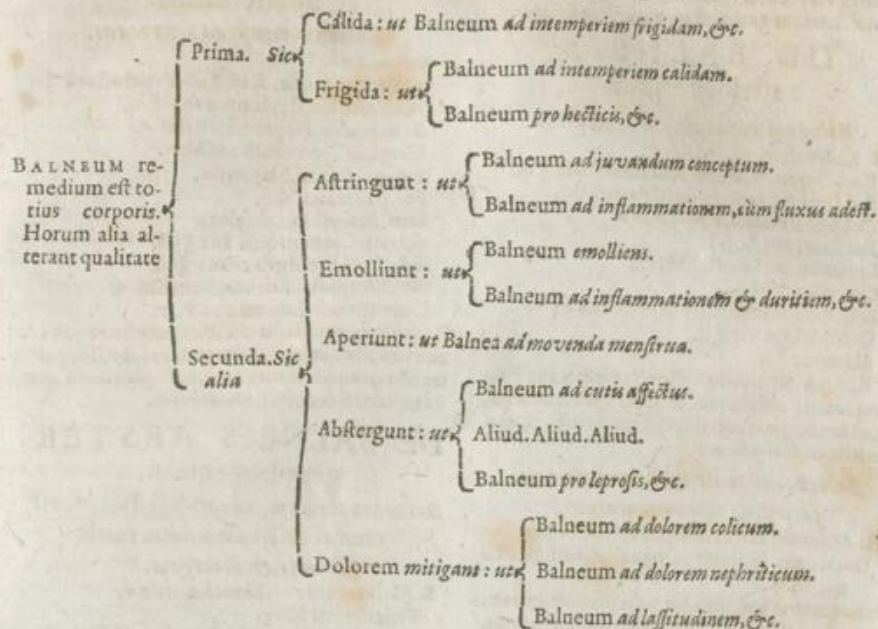 BALNEUM re-
medium est to-
tius corporis.
Horum alia al-
terant qualitate
Prima. Sic
Calida: ut Balneum ad intemperiem frigidam, &c.
Frigida: ut
Balneum ad intemperiem calidam.
Balneum pro hecticis, &c.
Secunda. Sic
alia
Astringunt: ut
Balneum ad juvandum conceptum.
Balneum ad inflammationem, cum fluxus adest.
Emolliunt: ut
Balneum emolliens.
Balneum ad inflammationem & duritiem, &c.
Aperiunt: ut Balnea ad movenda menstrua.
Abstergunt: ut
Balneum ad cutis affectus.
Aliud. Aliud. Aliud.
Balneum pro leprosis, &c.
Dolorem mitigant: ut
Balneum ad dolorem colicum.
Balneum ad dolorem nephriticum.
Balneum ad lassitudinem, &c.